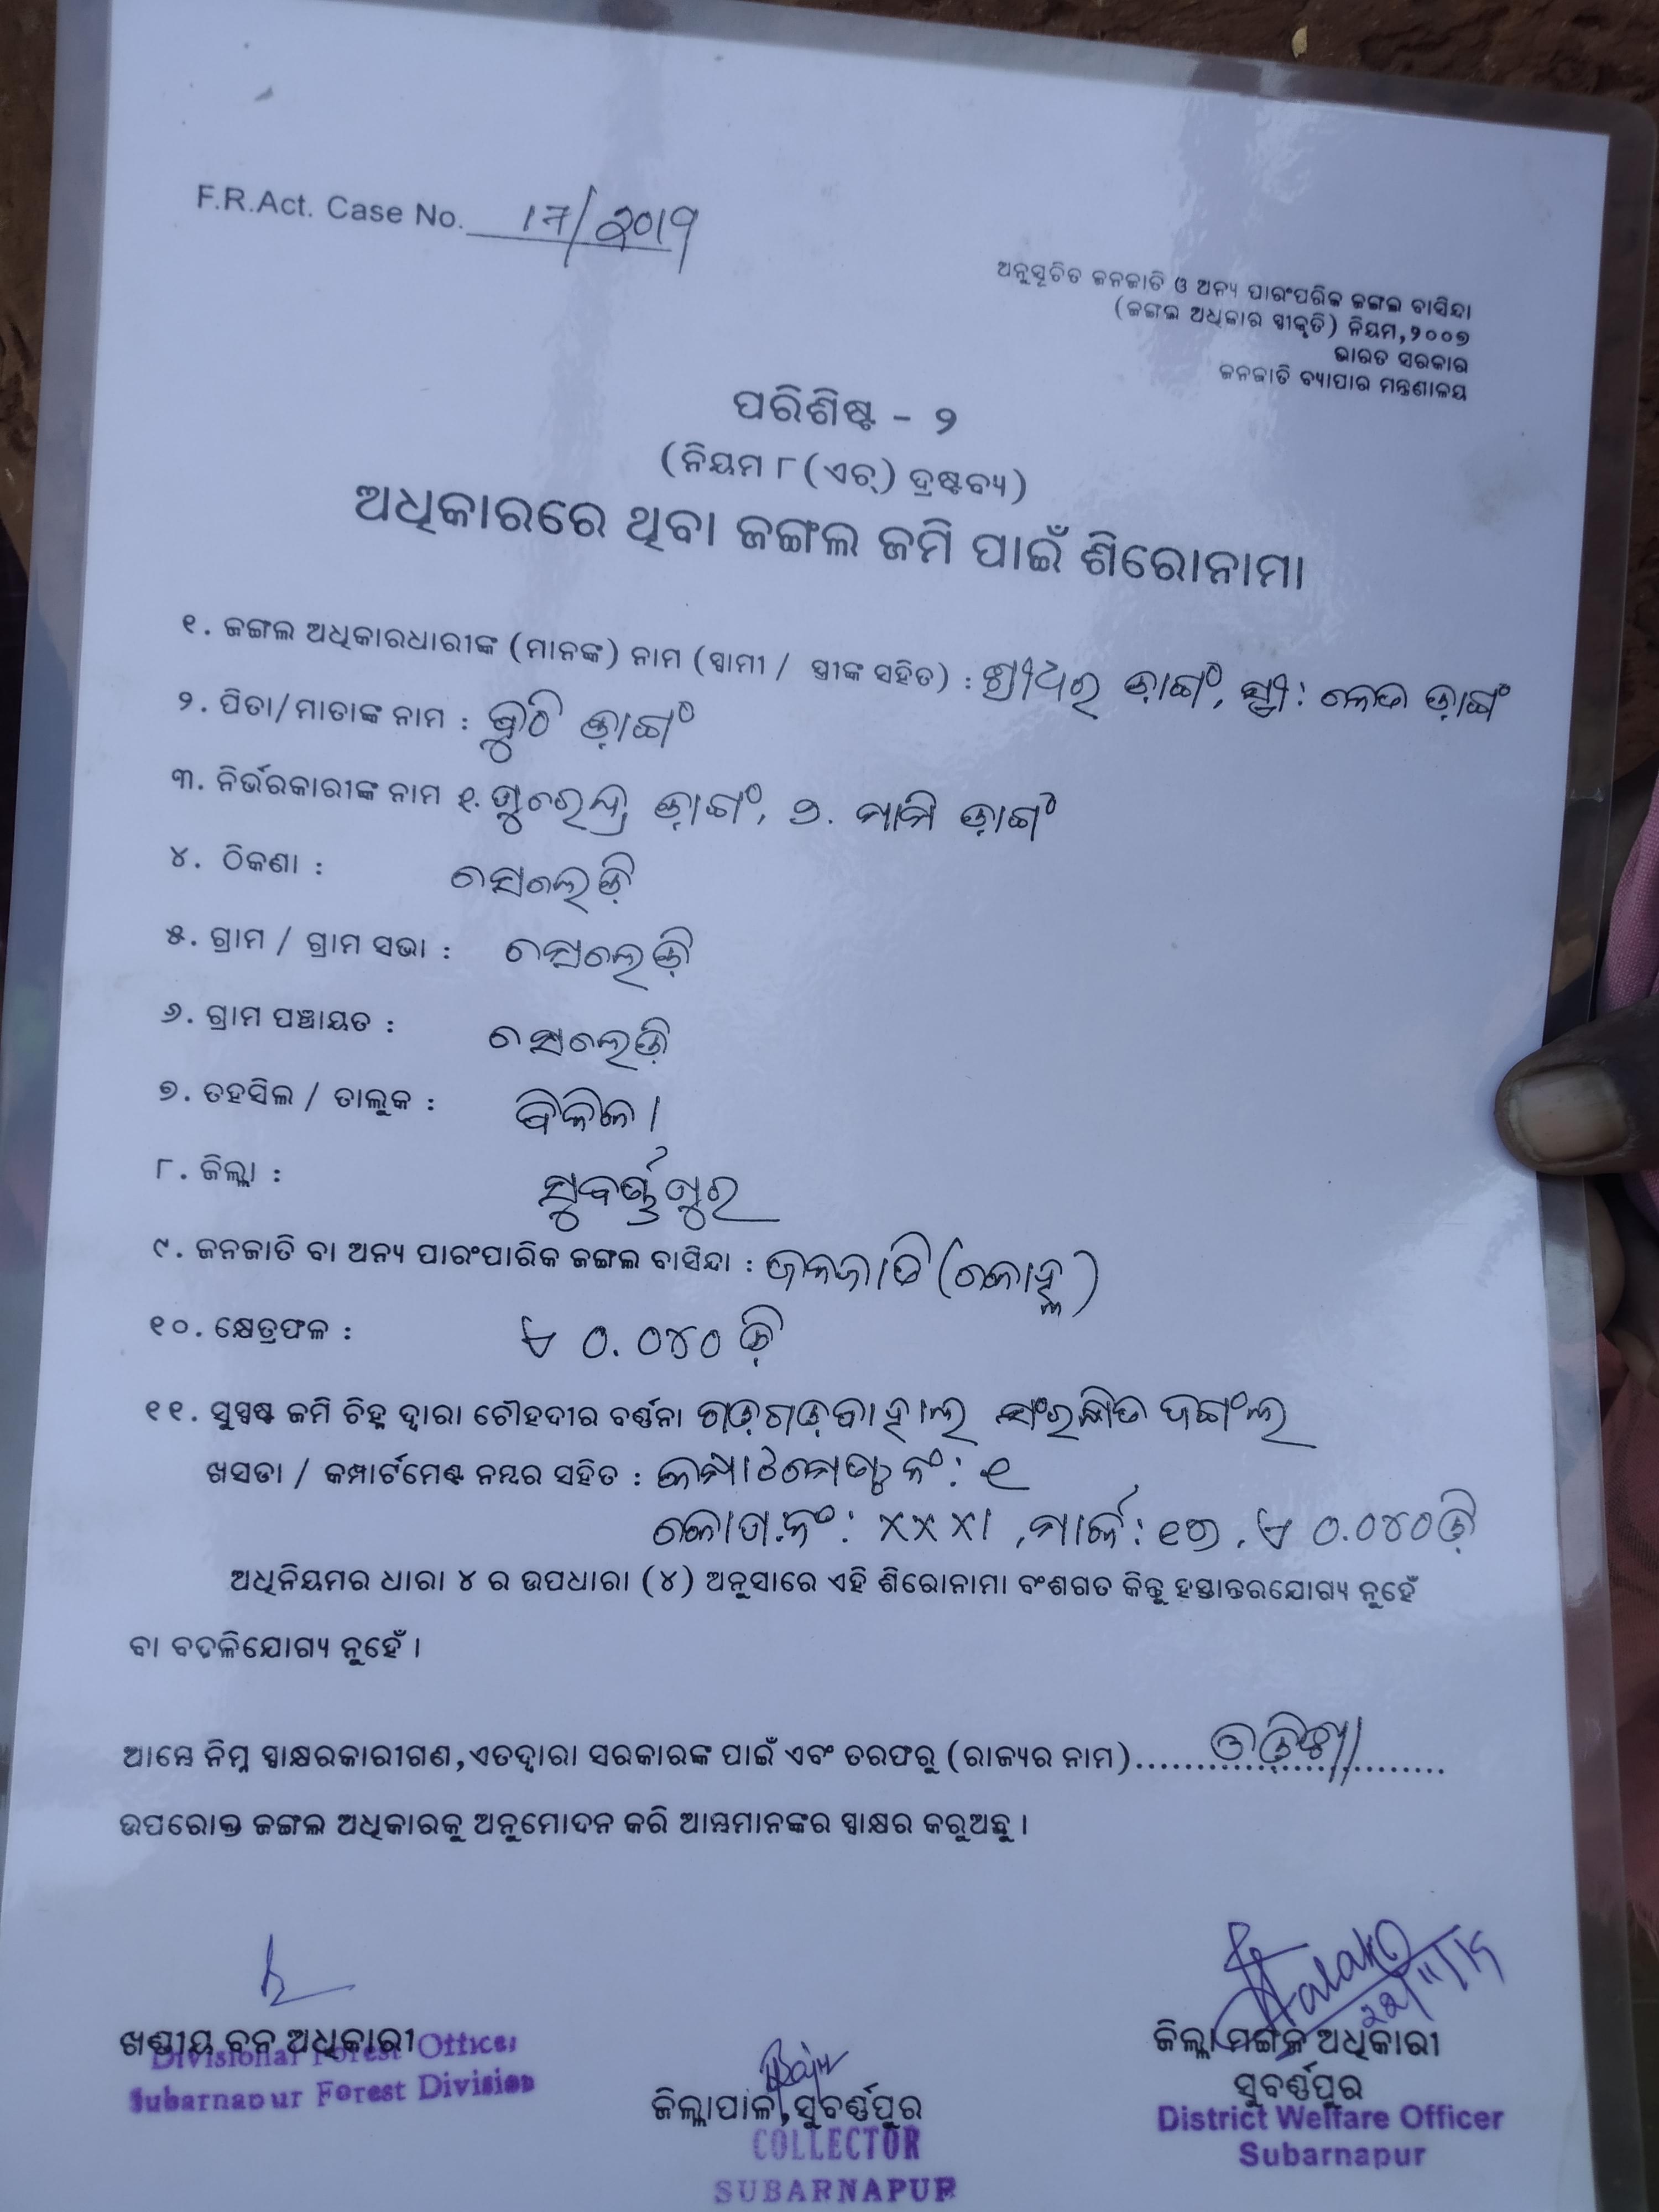 F.R.Act. Case No. ୨୦୧୨
ଅନୁସୂଚିତ ଜନଜାତି ଓ ଅନ୍ୟ ପାରଂପରିକ ଜଙ୍ଗଲ ବାସିନ୍ଦା
(ଜଙ୍ଗଲ ଅଧିକାର ସ୍ୱୀକୃତି) ନିୟମ,୨୦୦୭
ଭାରତ ସରକାର
ଜନଜାତି ବ୍ୟାପାର ମନ୍ତ୍ରଣାଳୟ
ପରିଶିଷ୍ଟ - ୨
(ନିୟମ ୮ (ଏଚ୍) ଦ୍ରଷ୍ଟବ୍ୟ)
ଅଧିକାରରେ ଥିବା ଜଙ୍ଗଲ ଜମି ପାଇଁ ଶିରୋନାମା
୧. ଜଙ୍ଗଲ ଅଧିକାରଧାରୀଙ୍କ (ମାନଙ୍କ) ନାମ (ସ୍ୱାମୀ / ସ୍ତ୍ରୀଙ୍କ ସହିତ) : ଶ୍ରୀଧର ଡ଼ାଙ୍ଗ, ସ୍ତ୍ରୀ: ଡ଼ାଙ୍ଗ
୨. ପିତା/ମାତାଙ୍କ ନାମ : ଡ଼ାଙ୍ଗ
୩. ନିର୍ଭରକାରୀଙ୍କ ନାମ ୧. ସୁରେନ୍ଦ୍ର ଡ଼ାଙ୍ଗ, ୨. ମାମି ଡ଼ାଙ୍ଗ
୪. ଠିକଣା : ସେଲେଡ଼ି
୫. ଗ୍ରାମ / ଗ୍ରାମ ସଭା : ସେଲେଡ଼ି
୬. ଗ୍ରାମ ପଞ୍ଚାୟତ : ସେଲେଡ଼ି
୭. ତହସିଲ / ତାଲୁକ : ବିନିକା
୮. ଜିଲ୍ଲା : ସୁବର୍ଣ୍ଣପୁର
୯. ଜନଜାତି ବା ଅନ୍ୟ ପାରଂପାରିକ ଜଙ୍ଗଲ ବାସିନ୍ଦା : ଜନଜାତି (କୋହ୍ଲ)
୧୦. କ୍ଷେତ୍ରଫଳ : ଏ ୦.୦୪୦ ଡ଼ି
୧୧. ସୁସ୍ପଷ୍ଟ ଜମି ଚିହ୍ନ ଦ୍ୱାରା ଚୌହଦୀର ବର୍ଣ୍ଣନା ଗଡ଼ଗଡ଼ବାହାଲ ସଂରକ୍ଷିତ ଜଙ୍ଗଲ
ଖସଡା / କମ୍ପାର୍ଟମେଣ୍ଟ ନମ୍ବର ସହିତ : କମ୍ପାର୍ଟମେଣ୍ଟ ନଂ: ୧
ନଂ: ୪୪୪୧, ଏ ୦.୦୪୦ଡ଼ି
ଅଧିନିୟମର ଧାରା ୪ ର ଉପଧାରା (୪) ଅନୁସାରେ ଏହି ଶିରୋନାମା ବଂଶଗତ କିନ୍ତୁ ହସ୍ତାନ୍ତରଯୋଗ୍ୟ ନୁହେଁ
ବା ବଦଳିଯୋଗ୍ୟ ନୁହେଁ ।
ଆମ୍ଭେ ନିମ୍ନ ସ୍ୱାକ୍ଷରକାରୀଗଣ,ଏତଦ୍ୱାରା ସରକାରଙ୍କ ପାଇଁ ଏବଂ ତରଫରୁ (ରାଜ୍ୟର ନାମ)..... ଓଡ଼ିଶା .....
ଉପରୋକ୍ତ ଜଙ୍ଗଲ ଅଧିକାରକୁ ଅନୁମୋଦନ କରି ଆମ୍ଭମାନଙ୍କର ସ୍ୱାକ୍ଷର କରୁଅଛୁ ।
ଖଣ୍ଡୀୟ ବନ ଅଧିକାରୀ
Divisional Forest Officer
Subarnapur Forest Division
ଜିଲ୍ଲାପାଳ,ସୁବର୍ଣ୍ଣପୁର
COLLECTOR
SUBARNAPUR
ଜିଲ୍ଲା ମଙ୍ଗଳ ଅଧିକାରୀ
ସୁବର୍ଣ୍ଣପୁର
District Welfare Officer
Subarnapur